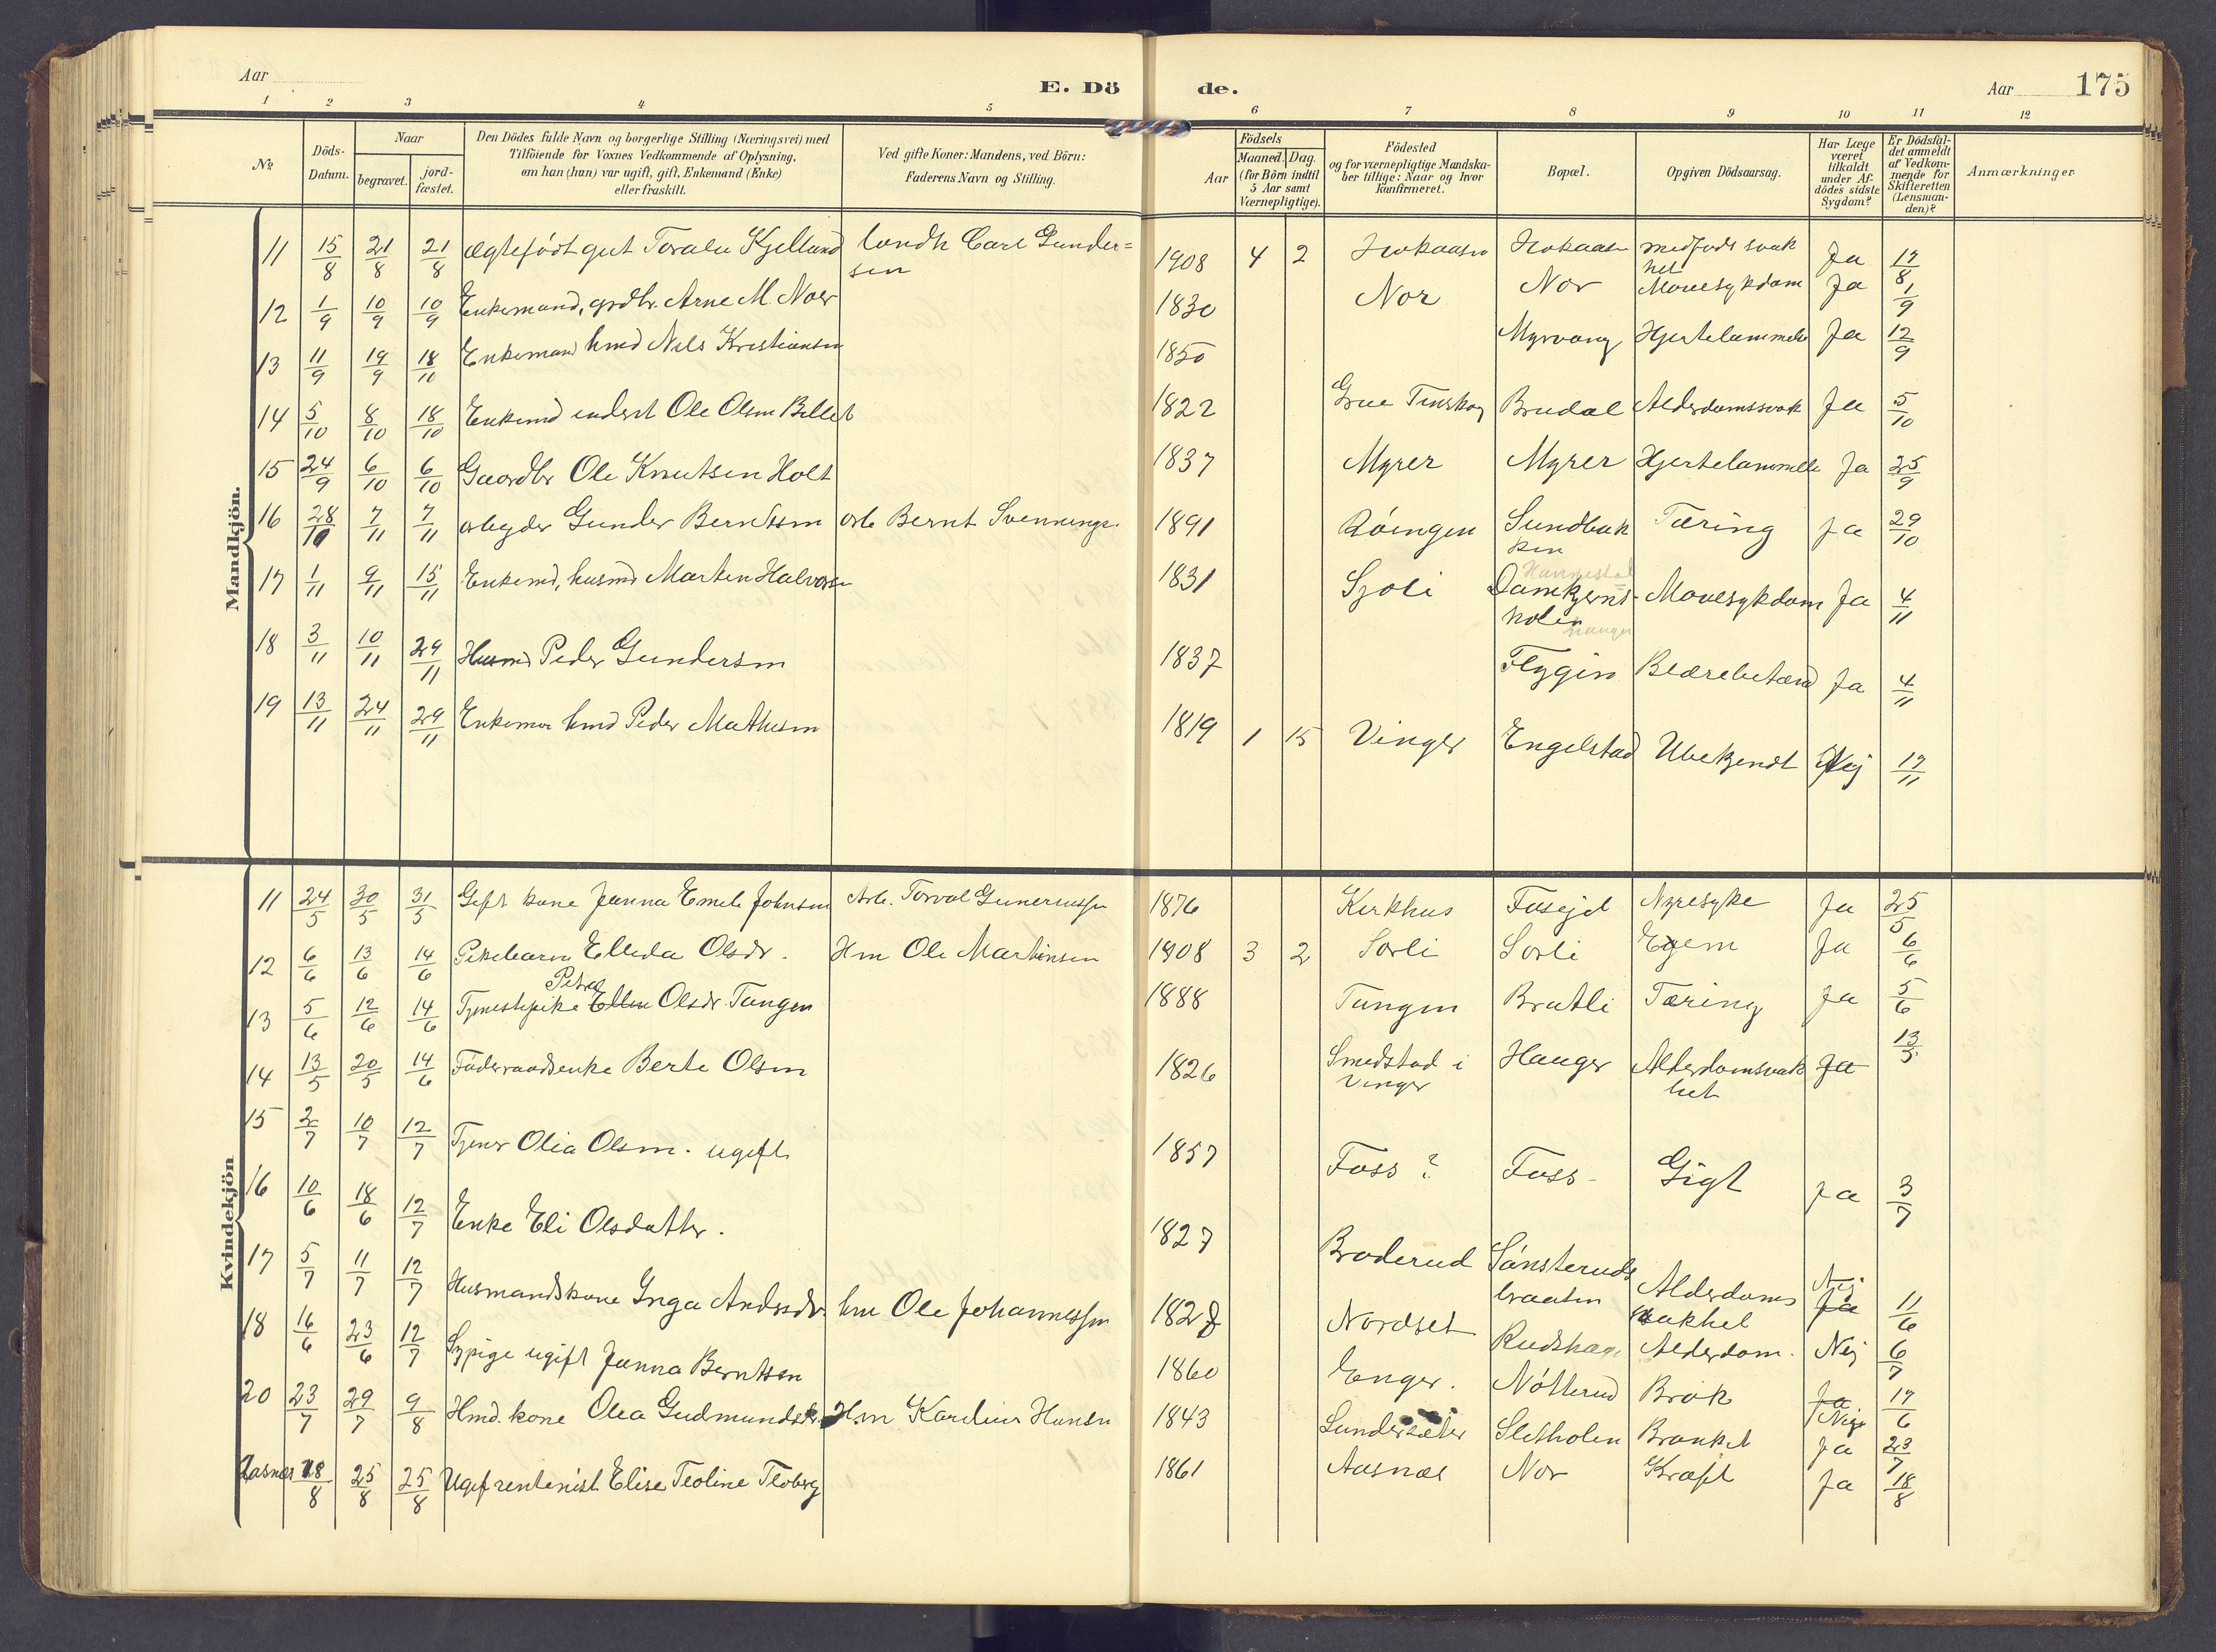 Aar
E. Dö
de.
Aar 175
1 2 3 4 5 6 7 8 9 10 11 12
№
Döds-Datum.
Naar
begravet.
jord-fæstet.
Den Dödes fulde Navn og borgerlige Stilling (Næringsvei) med
Tilföiende for Voxnes Vedkommende af Oplysning,
om han (hun) var ugift, gift, Enkemand (Enke)
eller fraskilt.
Ved gifte Koner: Mandens, ved Börn:
Faderens Navn og Stilling.
Födsels
Aar
Maaned. Dag.
(for Börn indtil
5 Aar samt
Værnepligtige).
Födested
og for værnepligtige Mandska-
ber tillige: Naar og hvor
Konfirmeret.
Bopæl.
Opgiven Dödsaarsag.
Har Læge
været
tilkaldt
under Af-
dödes sidste
Sygdom?
Er Dödsfal-
det anmeldt
af Vedkom-
mende for
Skifteretten
(Lensman-
den)?
Anmærkninger.
Mandkjön.
11 15/8 21/8 21/8 Ægtefödt gut Toralv Kjellund Carl Gunder= 1908 4 2 medfödt svak Ja 17/8
sen het
12 1/9 10/9 10/9 Enkemand, grdbr. Arne M. Noer 1830 Nor Nor Mavesykdom Ja 1/9
13 11/9 19/9 18/10 Enkemand hmd Nils Kristiansen 1850 Myrvang Hjertelammelse Ja 12/9
14 5/10 8/10 18/10 Enkemd inderst Ole Olsen Billet 1822 Grue Finskog Brudal Alderdomssvak Ja 5/10
15 24/9 6/10 6/10 Gaardbr Ole Knutsen Holt 1837 Myrer Myrer Hjertelammelse Ja 25/9
16 28/10 7/11 7/11 arbeyder Gunder Berntsen arb Bernt Svennings. 1891 Röingen Sundbak Tæring Ja 29/10
ken
17 1/11 9/11 15/11 Enkemd, husmd Marten Halvorsen 1831 Sjoli Mavesykdom Ja 4/11
holen
18 3/11 10/11 29/11 Husmd Peder Gundersen 1837 Flygin Blærebetænd Ja 4/11
19 13/11 24/11 29/11 Enkeman hmd Peder Mathisen 1819 1 15 Vinger Engelstad Ubekjendt Nej 17/11
Kvindekjön
11 24/5 30/5 31/5 Gift kone Janna Emili Johnsen Arb. Torval 1876 Kirkhus Nyresyke Ja 25/5
12 6/6 13/6 14/6 Pikebarn Ellida Olsdr. Hm Ole Martinsen 1908 3 2 Sorli Sorli Exem Ja 6/6
Petra
13 5/6 12/6 14/6 Tjenestepike Ellen Olsdr. Tangen 1888 Tangen Bratli Tæring Ja 5/6
14 13/5 20/5 14/6 Föderaadsenke Berte Olsen 1826 Smedstad i Hauger Alderdomsvak Ja 13/5
Vinger het
15 2/7 10/7 12/7 Tjener Olia Olsen. ugift 1857 Foss ? Foss Gigt Ja 3/7
16 10/6 18/6 12/7 Enke Eli Olsdatter. 1827 Broderud Sönsteruds Alderdoms Nej Ja 11/6
braaten svakhet
17 5/7 11/7 12/7 Husmandskone Inga Andrsdr. hm Ole Johannessen 1828 Nordset Rudshage Alderdom. Nej 6/7
18 16/6 23/6 12/7 Sypige ugift Janna Berntsen 1860 Enger. Nötterud Brok Ja 17/6
Nei
20 23/7 29/7 9/8 Hmd. kone Olea Gudmundsdr. Hm Karelius Hansen 1843 Sundersæter Sletholen Brankit Ja 23/7
Aasnæs 18/8 25/8 25/8 Ugift rentenist Elise Teoline Floberg 1861 Aasnæs Nor Kræft Ja 18/8